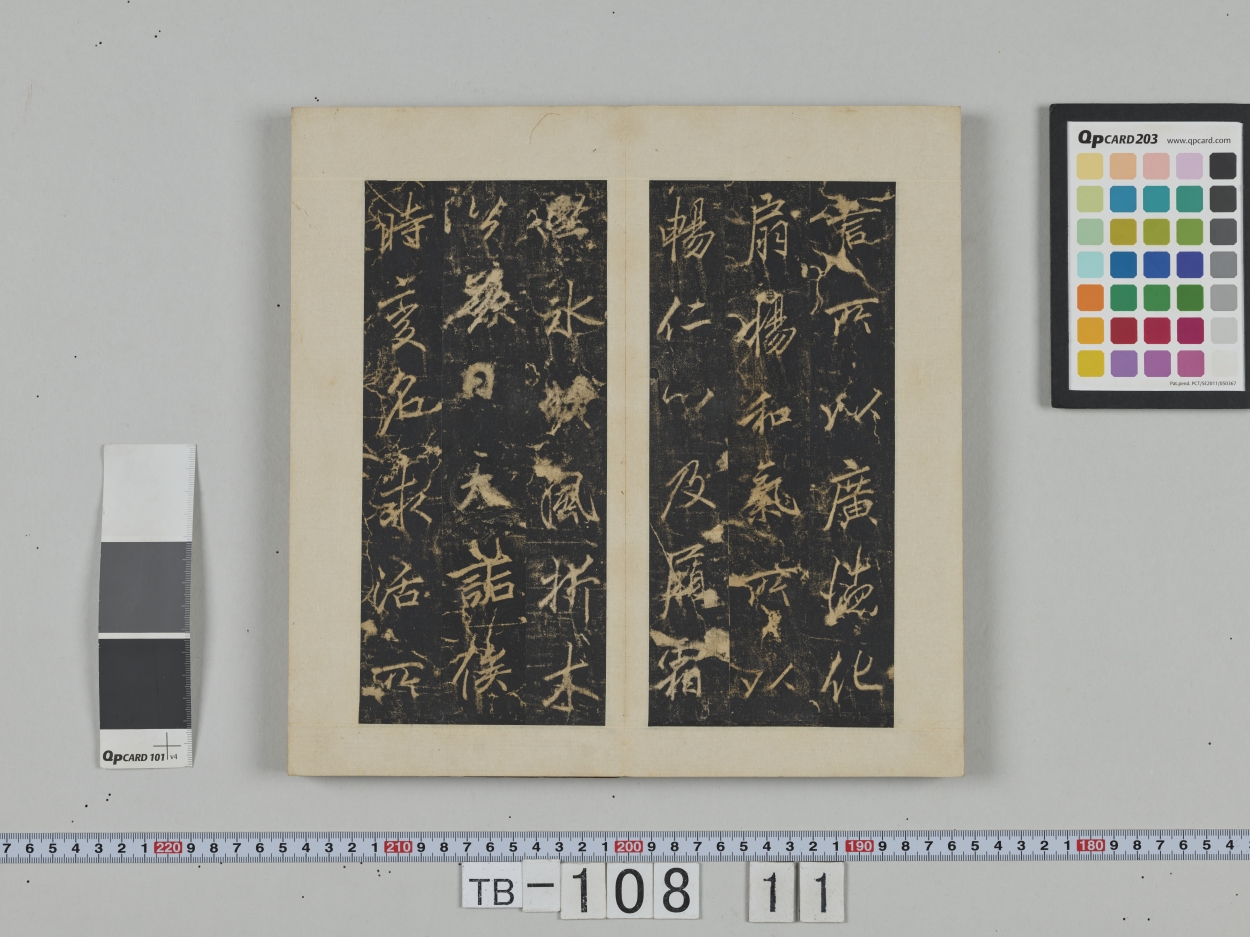 言所以廣德化
扇揚和氣所以
暢仁心及履霜
堅冰嚴風折木
日天詣候
時名活所
QPCARD 203 www.qpcard.com
Pat.pend. PCT/SE2011/050367
QPCARD 101 v4
7 6 5 4 3 2 1 220 9 8 7 6 5 4 3 2 1 210 9 8 7 6 5 4 3 2 1 200 9 8 7 6 5 4 3 2 1 190 9 8 7 6 5 4 3 2 1 180 9 8 7 6 5 4
TB-108 11